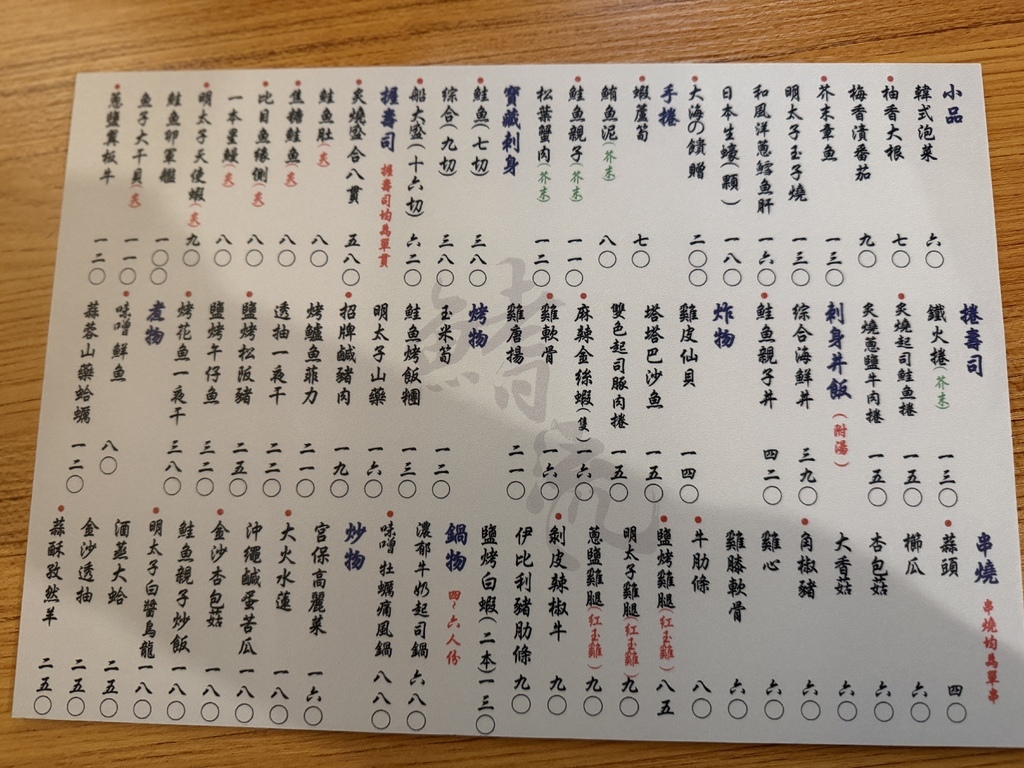 小品
韓式泡菜 六〇
柚香大根 七〇
梅香漬番茄 九〇
芥末章魚 一三〇
明太子玉子燒 一三〇
和風洋蔥鱈魚肝 一六〇
日本生蠔(顆) 一八〇
大海の饋贈 二〇〇
手捲
蝦蘆筍 七〇
鮪魚泥(芥末) 八〇
鮭魚親子(芥末) 一一〇
松葉蟹肉(芥末) 一二〇
寶藏刺身
鮭魚(七切) 三八〇
綜合(九切) 三八〇
船大盛(十六切) 六二〇
握壽司 握壽司均為單貫
炙燒盛合八貫 五八〇
鮭魚肚(炙) 八〇
焦糖鮭魚(炙) 八〇
比目魚緣側(炙) 八〇
一本星鰻(炙) 八〇
明太子天使蝦(炙) 九〇
鮭魚卵軍艦 一〇〇
魚子大干貝(炙) 一一〇
蔥鹽翼板牛 一二〇
捲壽司
鐵火捲(芥末) 一三〇
炙燒起司鮭魚捲 一五〇
炙燒蔥鹽牛肉捲 一五〇
刺身丼飯(附湯)
綜合海鮮丼 三九〇
鮭魚親子丼 四二〇
炸物
雞皮仙貝 一四〇
塔塔巴沙魚 一五〇
雙色起司豚肉捲 一五〇
麻辣金絲蝦(隻) 一六〇
雞軟骨 一六〇
雞唐揚 二一〇
烤物
玉米筍 一二〇
鮭魚烤飯糰 一三〇
明太子山藥 一六〇
招牌鹹豬肉 一九〇
烤鱸魚菲力 二一〇
透抽一夜干 二二〇
鹽烤松阪豬 二五〇
鹽烤午仔魚 三二〇
烤花魚一夜干 三八〇
煮物
味噌鮮魚 八〇
蒜蓉山藥蛤蠣 一二〇
串燒 串燒均為單串
蒜頭 四〇
櫛瓜 六〇
杏包菇 六〇
大香菇 六〇
角椒豬 六〇
雞心 六〇
雞膝軟骨 六〇
牛肋條 八〇
鹽烤雞腿(紅玉雞) 八五
明太子雞腿(紅玉雞) 九〇
蔥鹽雞腿(紅玉雞) 九〇
剝皮辣椒牛 九〇
伊比利豬肋條 九〇
鹽烤白蝦(二本) 一三〇
鍋物 四~六人份
濃郁牛奶起司鍋 六八〇
味噌牡蠣痛風鍋 八八〇
炒物
宮保高麗菜 一六〇
大火水蓮 一八〇
沖繩鹹蛋苦瓜 一八〇
金沙杏包菇 一八〇
鮭魚親子炒飯 一八〇
明太子白醬烏龍 一八〇
酒蒸大蛤 二五〇
金沙透抽 二五〇
蒜酥孜然羊 二五〇